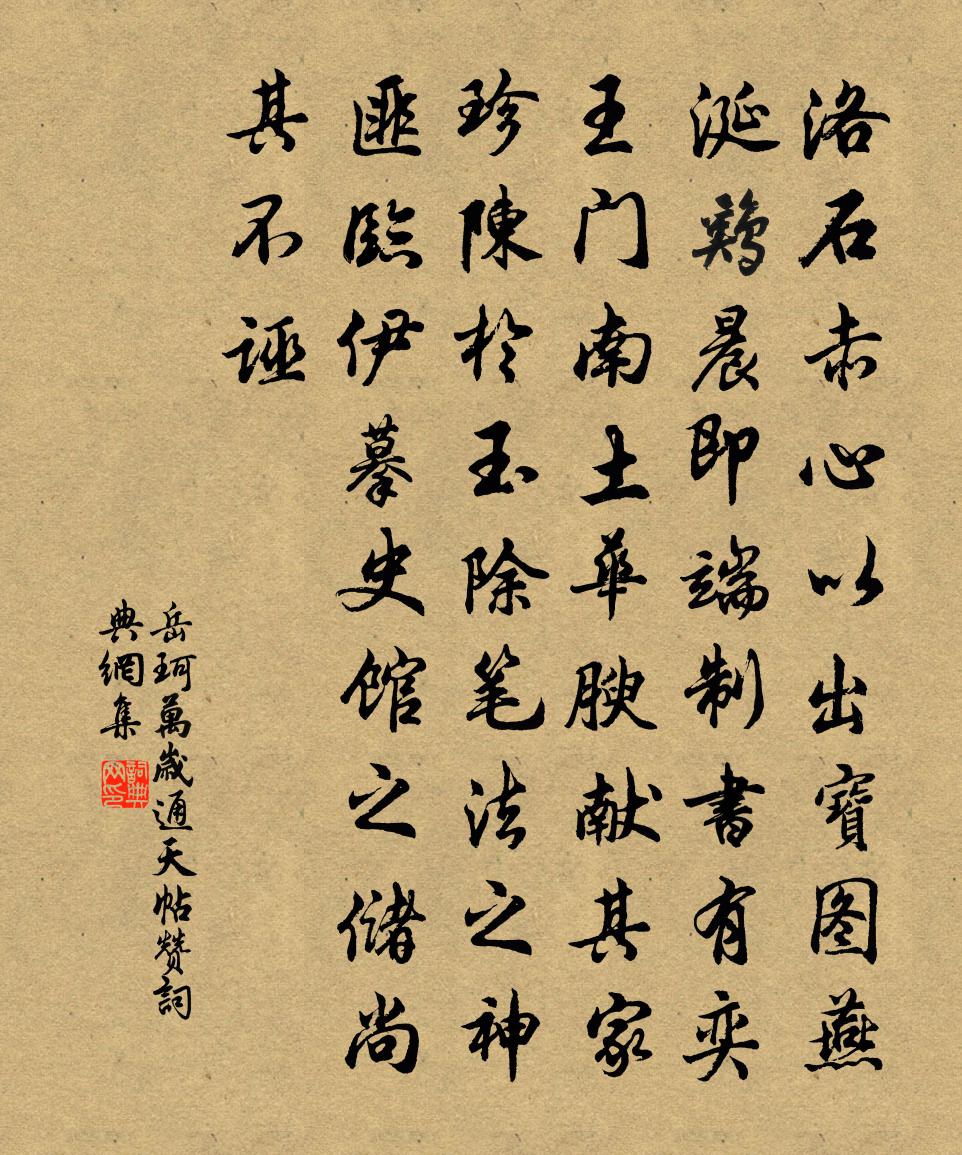 洛石赤心以出寶图燕
涎鷄晨即端制書有奕
王门南土華腴献其家
珍陳於玉除笔法之神
匪臨伊摹史館之儲尚
其不誣
岳珂萬歲通天帖赞詞
典網集
詞典网印